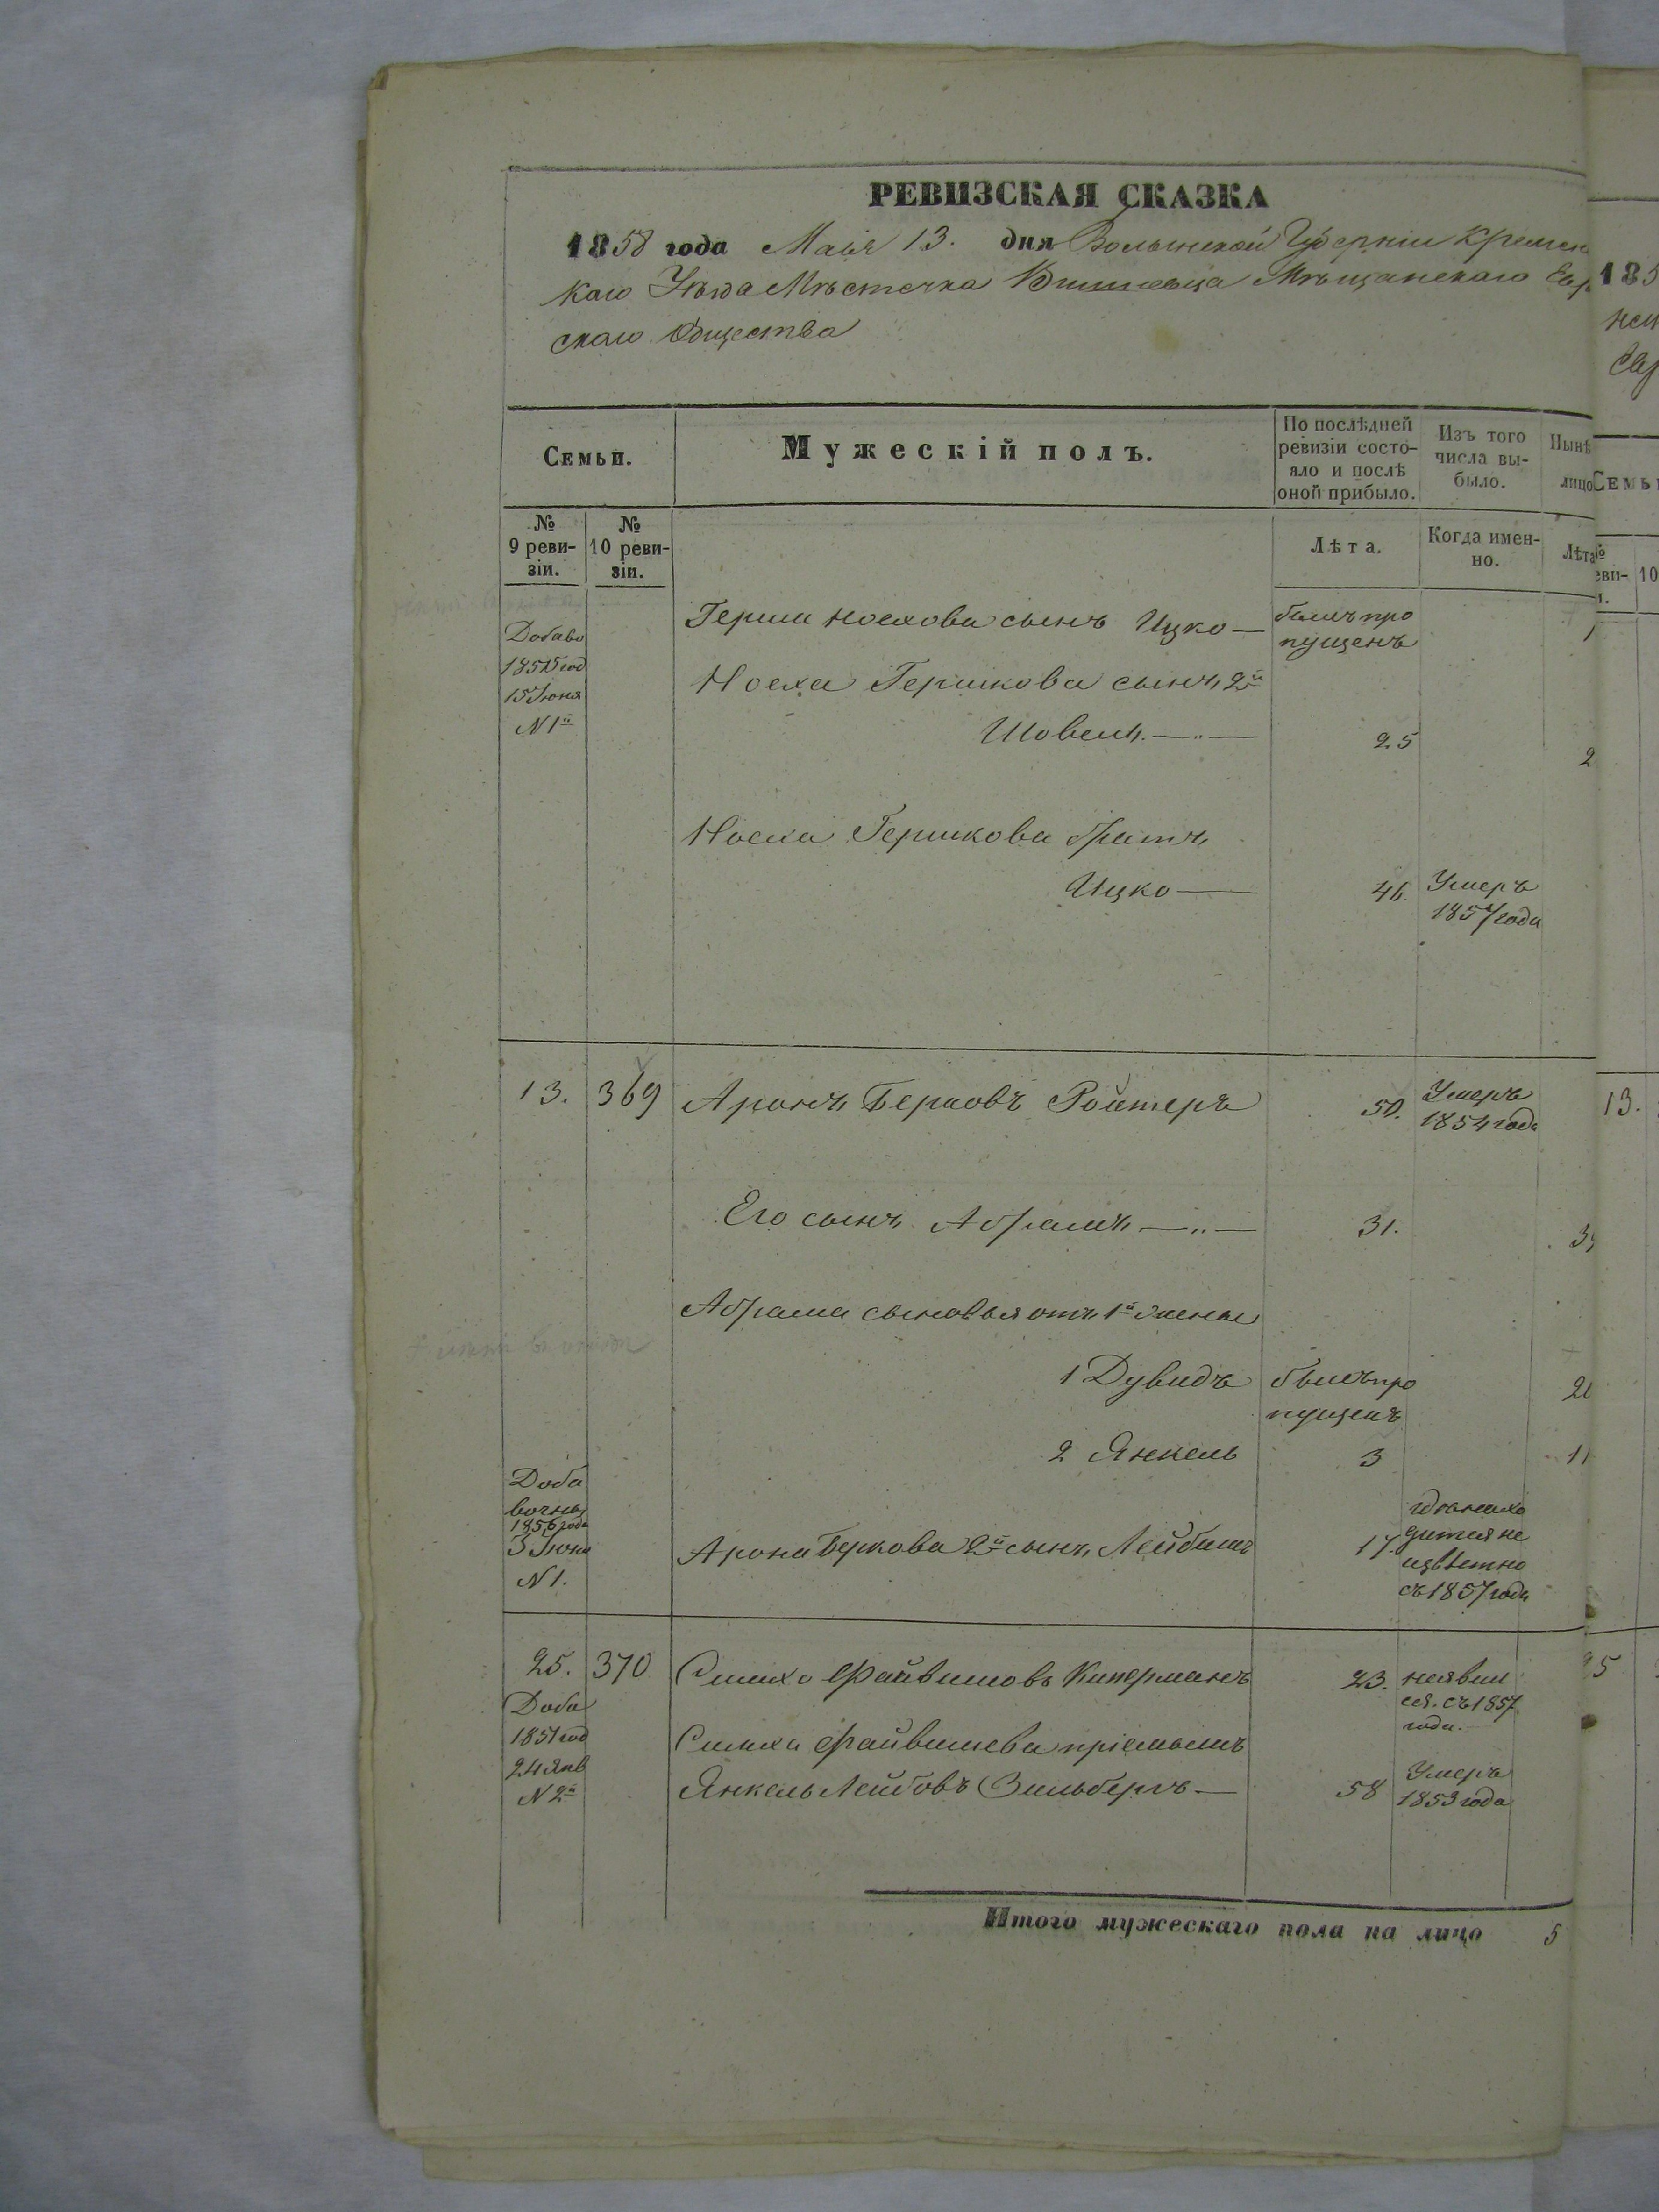 РЕВИЗСКАЯ СКАЗКА
1858 года Маія 13. дня Волынской Губерніи Кремен
каго Уѣзда Мѣстечка Вишневца Мѣщанскаго Евр
скаго Общества
Семьи.
Мужескій полъ.
По послѣдней
ревизіи состо-
яло и послѣ
оной прибыло.
Изъ того
числа вы-
было.
Нынѣ
лицо
№
9 реви-
зіи.
№
10 реви-
зіи.
Лѣта.
Когда имен-
но.
Лѣта
Добаво
1851 год
15 Іюня
N 1й
Герша Носхова сынъ Ицко —
былъ про
пущенъ
1
Носха Гершкова сынъ 2й
Шовель —„—
25
2
Носха Гершкова братъ
Ицко —
46.
Умеръ
1857 года
13.
369
Аронъ Берковъ Ройтеръ
50.
Умеръ
1854 года
Его сынъ Абрамъ —„—
31.
39
Абрама сыновья отъ 1й жены
1 Дувидъ
былъ про
пущенъ
20
2 Янкель
3
11
Доба
вочная
1856 года
3 Іюня
N 1.
Арона Беркова 2й сынъ Лейбишъ
17.
где нахо
дится не
извѣстно
съ 1857 года
25.
370
Симха Файвишовъ Киперманъ
23.
неявил
ся. съ 1857
года.
Доба
1851 год
24 Янв
N 2й
Симхи Файвишева пріемышъ
Янкель Лейбовъ Зильбергъ —
58
Умеръ
1853 года
Итого мужескаго пола на лицо 5
185
Семьи
13.
25